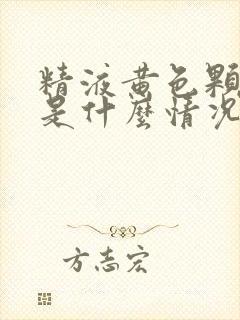 精液黄色颗
是什麼情况
方志宏